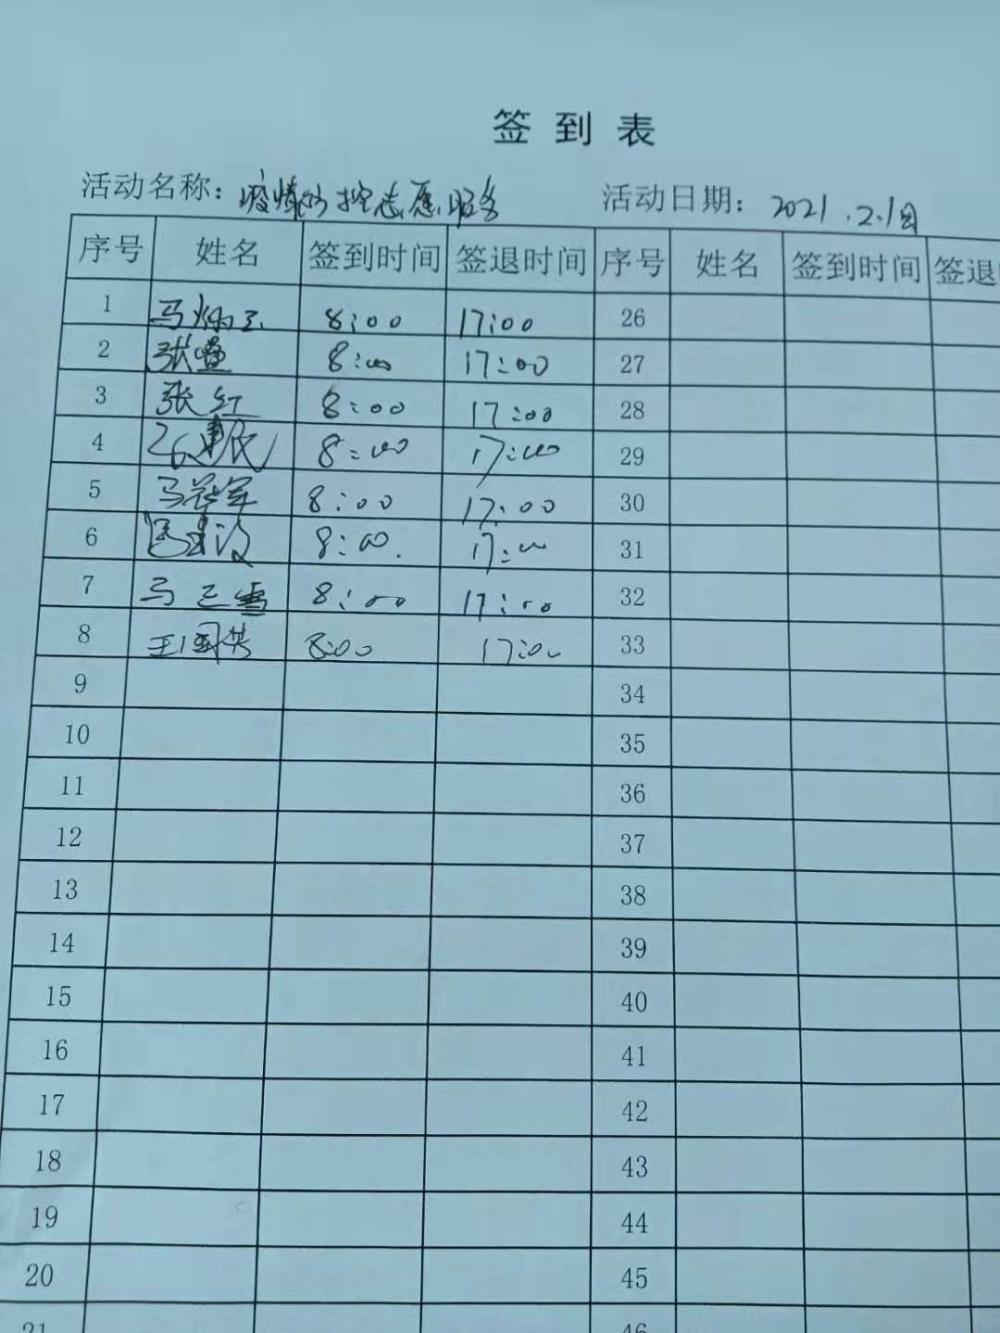 签到表
活动名称：疫情防控志愿服务 活动日期：2021.2.1日
序号 姓名 签到时间 签退时间 序号 姓名 签到时间 签退
1 马炳玉 8:00 17:00 26
2 张 8:00 17:00 27
3 张红 8:00 17:00 28
4 8:00 17:00 29
5 马军 8:00 17:00 30
6 8:00. 17:00 31
7 马 8:00 17:00 32
8 王国英 8:00 17:00 33
9 34
10 35
11 36
12 37
13 38
14 39
15 40
16 41
17 42
18 43
19 44
20 45
21 46